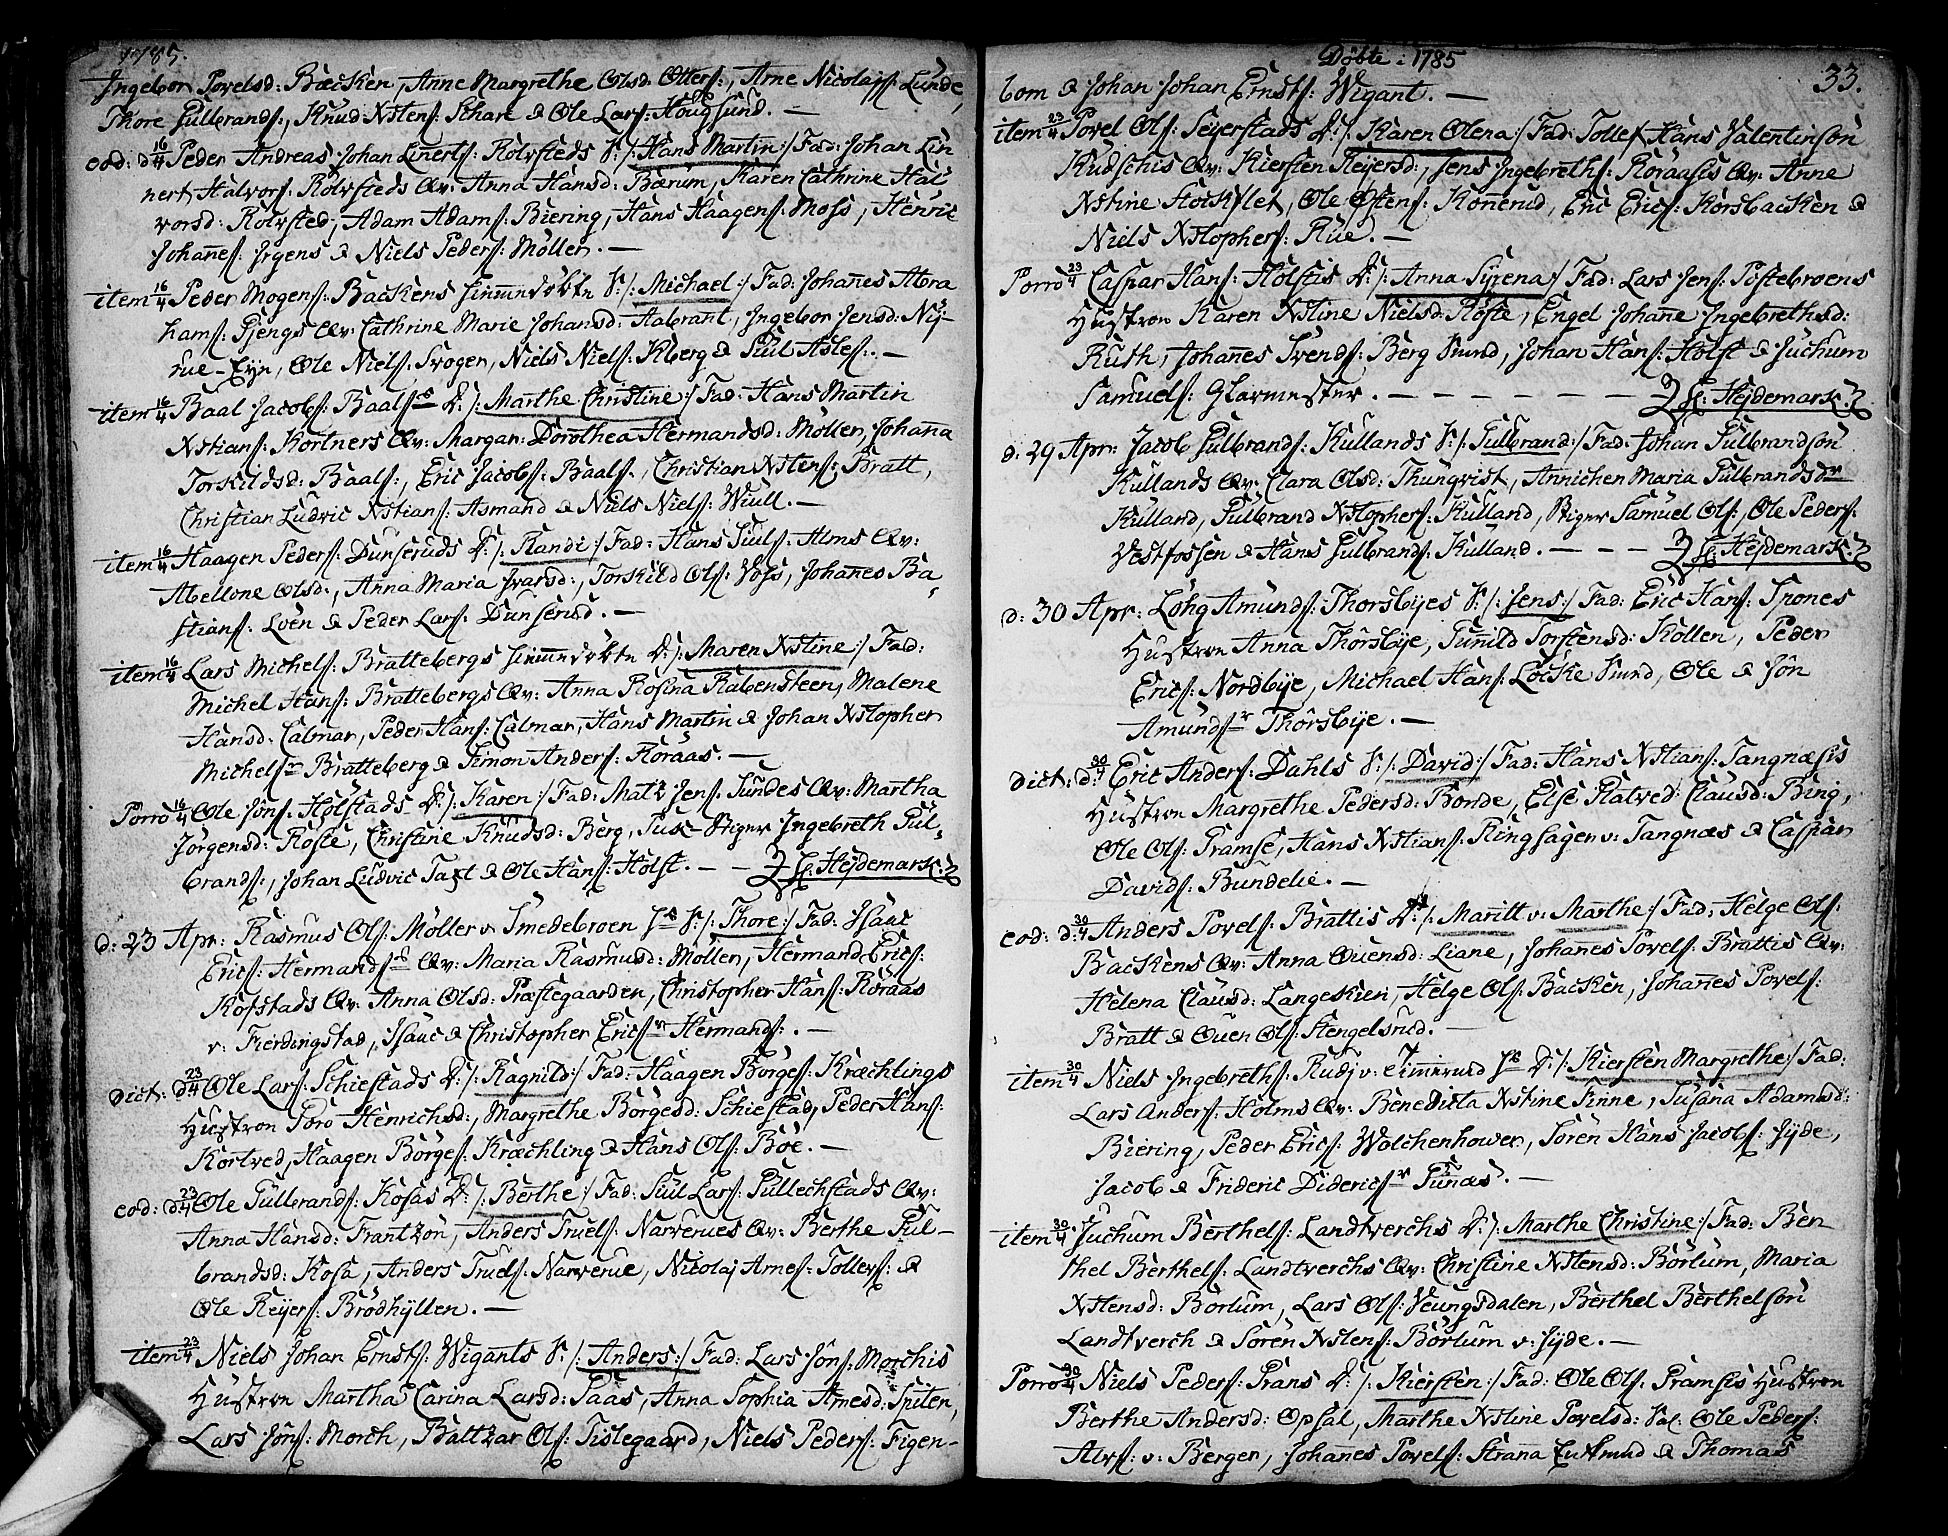 1785.
Ingebor Povelsd: Bæcken, Anne Margrethe Olsd: Otters:, Arne Nicolajs: Lunde,
Thore Gulbrands:, Knud Xstens: Skare & Ole Lars: Hougsund. —
eod: d 16/4 Peder Andreas Johan Linerts: Rolvsteds S: /: Hans Martin :/ Fad: Johan Lin
nert Halvors: Rolvsteds Qv: Anna Hansd: Bærum, Karen Cathrine Hal
vorsd: Rolvsted, Adam Adams: Biering, Hans Haagens: Moss, Henric
Johañes: Irgens & Niels Peders: Möller. —
item 16/4 Peder Mogens: Backens hiemmedøbte S: /: Michael :/ Fad: Johañes Abra
hams: Qv: Cathrine Marie Johansd: Aabrant, Ingebor Jensd: Nÿ-
rue-Eyn, Ole Niels: Svogen, Niels Niels: Kberg & Juul Asles:. —
item 16/4 Baal Jacobs: Baals D: /: Marthe Christine :/ Fad: Hans Martin
Xstians: Kortners Qv: Margar: Dorothea Hermandsd: Möller, Johaña
Torskildsd: Baals:, Eric Jacobs: Baals:, Christian Xstens: Bratt,
Christian Ludvic Xstians: Asmand & Niels Niels: Wiull. —
item 16/4 Haagen Peders: Dunseruds D: /: Randi :/ Fad: Hans Juuls: Alms Qv:
Abellone Olsd:, Anna Maria Ivarsd:, Torskild Ols: Voss, Johañes Ba-
stians: Loen & Peder Lars: Dunserud. —
item 16/4 Lars Michels: Brattebergs hiemmedøbte D: /: Maren Xstine :/ Fad:
Michel Hans: Brattebergs Qv: Anna Rosina Rabensteen, Malene
Hansd: Calmar, Peder Hans: Calmar, Hans Martin & Johan Xstopher
Michels: Bratteberg & Simon Anders: Horaas. —
Porro 16/4 Ole Jöns: Holstads D: /: Karen :/ Fad: Matz Jens: Sundes Qv: Martha
Jörgensd: Foste, Christine Knudsd: Berg, Jus-Stiger Ingebreth Gul-
brands:, Johan Ludvic Taxt & Ole Hans: Holst. — — H: Hejdemark.
d: 23 Apr: Rasmus Ols: Möller v: Smedebroen S: /: Thore :/ Fad: Isauc
Erics: Hermands: Qv: Maria Rasmusd: Möller, Hermand Erics:
Kopstads Qv: Anna Olsd: Præstegaarden, Christopher Hans: Roraas
v: Fierdingstad, Isauc & Christopher Erics: Hermands:. —
Dict: d 23/4 Ole Lars: Schiestads D: /: Ragnild :/ Fad: Haagen Börges: Kræchlings
Hustroe Poro Henrichsd:, Margrethe Börgesd: Schiestad, Peder Hans:
Kortved, Haagen Börges: Kræchling & Hans Ols: Böe. —
eod: d 23/4 Ole Gulbrands: Kosas D: /: Berthe :/ Fad: Juul Lars: Gullechstads Qv:
Anna Hansd: Frantzon, Anders Truels: Narverues Qv: Berthe Gul-
brandsd: Kosa, Anders Truels: Narverue, Nicolaj Arnes: Tollers: &
Ole Reyers: Brödhyllen. —
item 23/4 Niels Johan Ernsts: Wigants S: /: Anders :/ Fad: Lars Jöns: Morchis
Hustroe Martha Carina Larsd: Saas, Anna Sophia Arnesd: Spiten,
Lars Jöns: Morch, Baltzar Ols: Tislegaard, Niels Peders: Figen-
Döbte i 1785
33.
bom & Johan Johan Ernsts: Wigant. —
item 23/4 Povel Ols: Seyerstads D: /: Karen Olena :/ Fad: Tollef Hans Valentinson
Kudschis Qv: Kiersten Reyersd:, Jens Ingebreths: Horaasis Qv: Anne
Xstine Stockflet, Ole Ostens: Konnerud, Eric Erics: Korsbacken &
Niels Xstophers: Rue. —
Porro 23/4 Caspar Hans: Holstis D: /: Anna Syrena :/ Fad: Lars Jens: Postebroens
Hustroe Karen Xstine Nielsd: Foste, Engel Johañe Ingebrethsd:
Ruth, Johañes Svends: Berg Smed, Johan Hans: Holst & Juchum
Samuels: Glarmester. — — — — — H: Hejdemark.
d: 29 Apr: Jacob Gulbrands: Kullands S: /: Gulbrand :/ Fad: Johan Gulbrandson
Kullands Qv: Clara Olsd: Thunqvist, Annichen Maria Gulbrandsd:
Kulland, Gulbrand Xstophers: Kulland, Stiger Samuel Ols:, Ole Peders:
Vestfossen & Hans Gulbrands: Kulland. — — — H: Hejdemark.
d: 30 Apr: Löhg Amunds: Thorsbyes S: /: Jens :/ Fad: Eric Hans: Spones
Hustroe Anna Thorsbye, Gunild Torstensd: Kollen, Peder
Erics: Nordbye, Michael Hans: Locke Smed, Ole & Jön
Amunds: Thorsbye. —
Dict: d: 30/4 Eric Anders: Dahls S: /: David :/ Fad: Hans Xstians: Tangnæsis
Hustroe Margrethe Pedersd: Borde, Else Hatved Clausd: Bing,
Ole Ols: Framse, Hans Xstians: Ringsager v: Tangnæs & Caspar
Davids: Bundelie. —
eod: d: 30/4 Anders Povels: Brattis D: /: Maritt v: Marthe :/ Fad: Helge Ols:
Backens Qv: Anna Ouensd: Liane, Johañes Povels: Brattis Qv:
Helena Clausd: Langeskien, Helge Ols: Backen, Johañes Povels:
Bratt & Ouen Ols: Stengelsrud. —
item 30/4 Niels Ingebreths: Rudj v: D: /: Kiersten Margrethe :/ Fad:
Lars Anders: Holms Qv: Benedicta Xstine Finne, Susaña Adamsd:
Biering, Peder Erics: Wolchenhower, Soren Hans Jacobs: Jyde,
Jacob & Frideric Diderics: Funæs. —
item 30/4 Juchum Berthels: Landtverchs D: /: Marthe Christine :/ Fad: Ber
thel Berthels: Landtverchs Qv: Christine Xstensd: Börlum, Maria
Xstensd: Börlum, Lars Ols: Veungsdalen, Berthel Berthelson
Landtverch & Soren Xstens: Börlum v: Jyde. —
Porro 30/4 Niels Peders: Prans D: /: Kiersten :/ Fad: Ole Ols: Pramsis Hustroe
Berthe Andersd: Opsal, Marthe Xstine Povelsd: Sal: Ole Peders:
Alvs: v: Bergen, Johañes Povels: Straña & Thomas